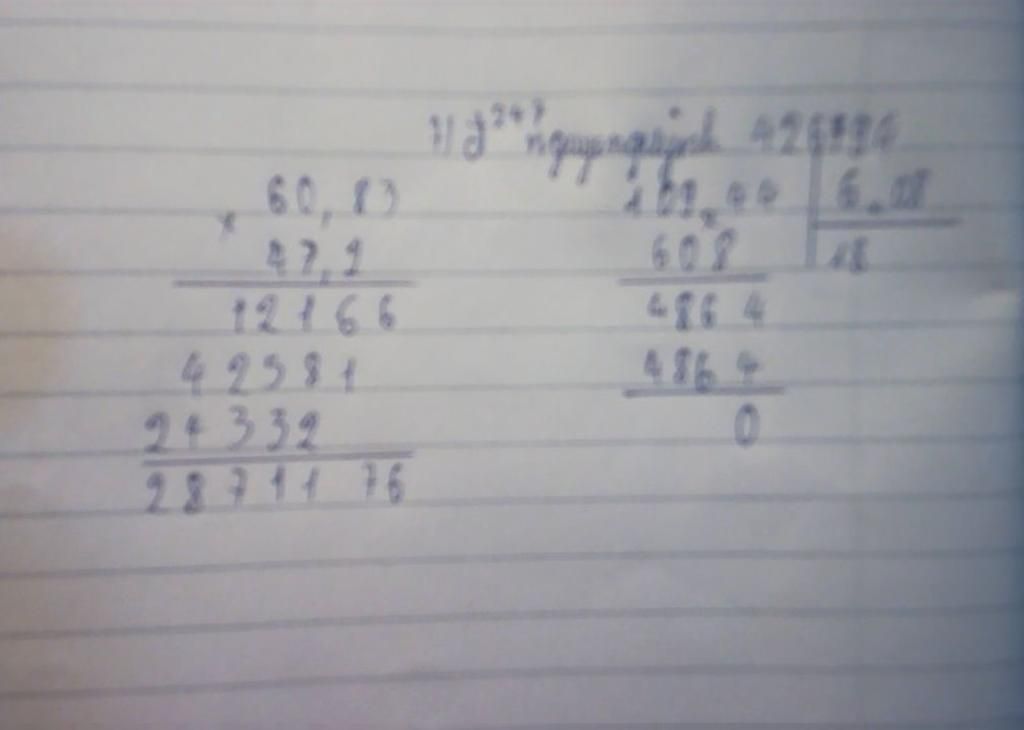 60,83
×
47,2
12166
42581
24332
28711 76
109,44 6,08
608 18
4864
4864
0